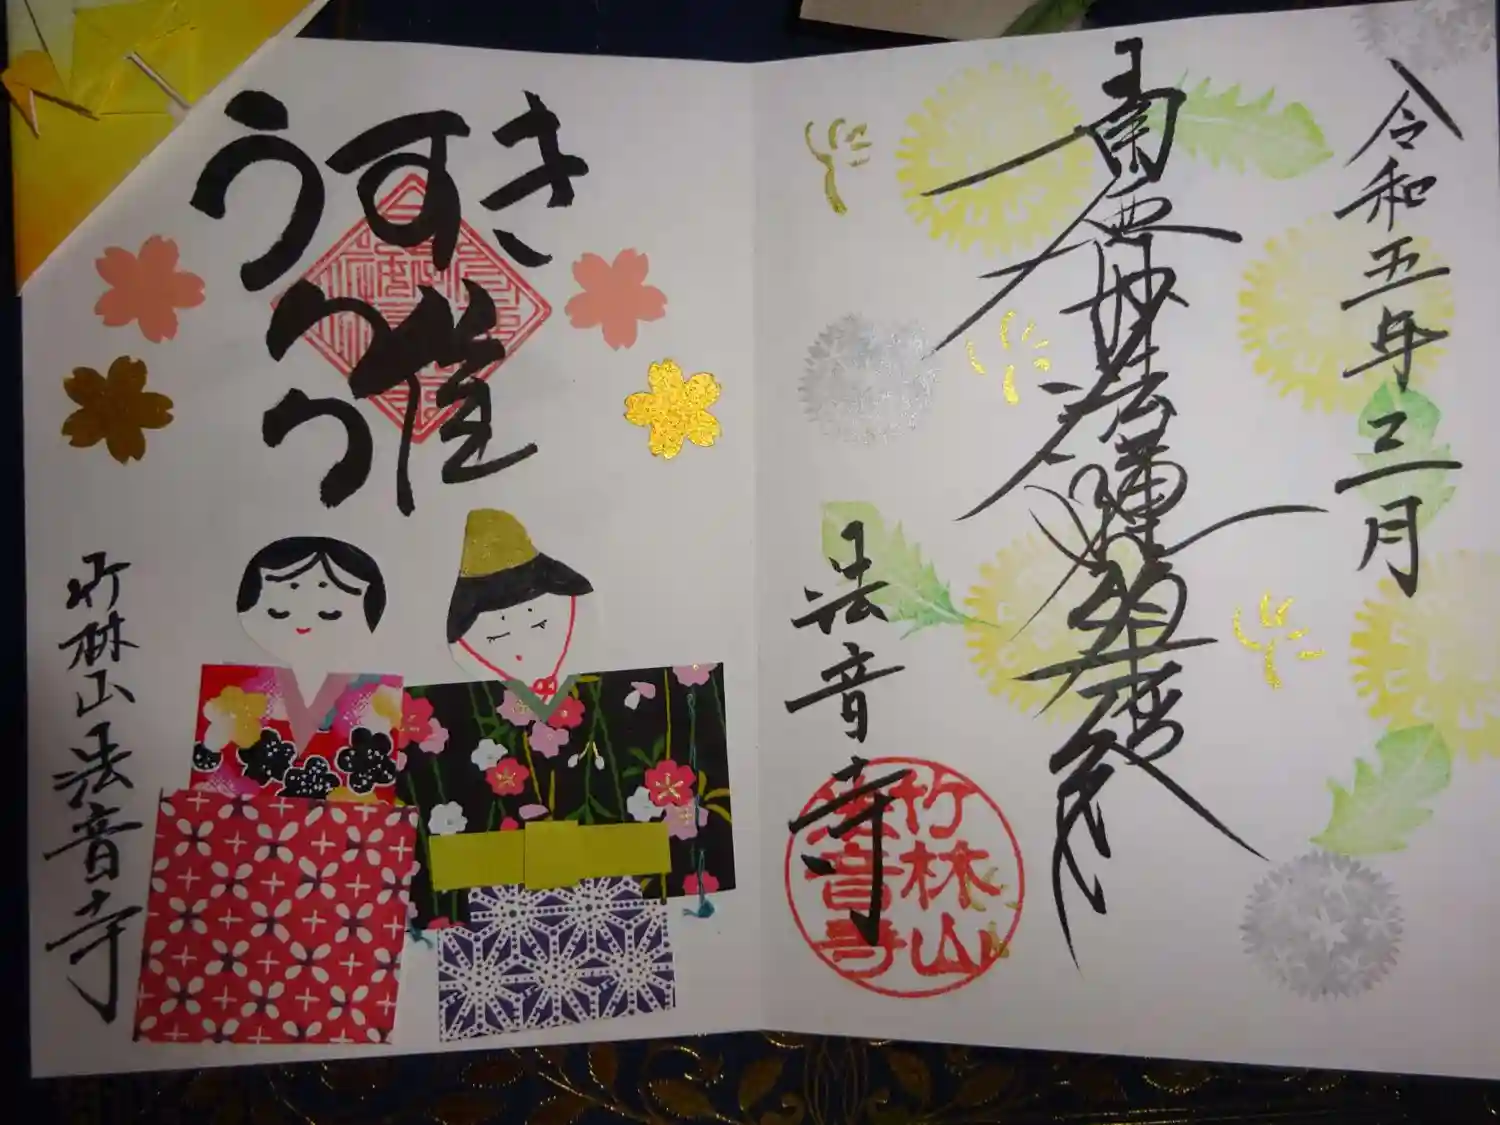 令和五年三月
南無妙法蓮華経
法音寺
竹林山
法音寺
うすき
雛
竹林山法音寺